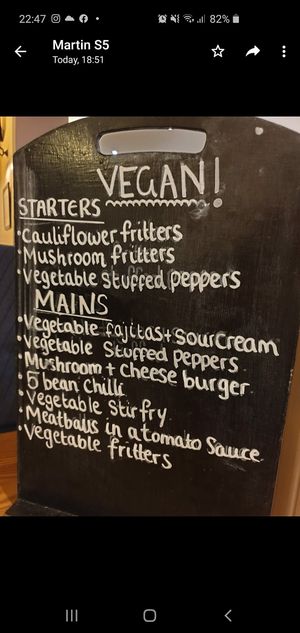 22:47 82%
Martin S5
Today, 18:51
VEGAN!
STARTERS
• Cauliflower fritters
• Mushroom fritters
• Vegetable Stuffed peppers
MAINS
• Vegetable fajitas + SourCream
• Vegetable Stuffed Peppers
• Mushroom + cheese burger
• 5 bean chilli
• Vegetable Stirfry
• Meatballs in a tomato Sauce
• Vegetable fritters